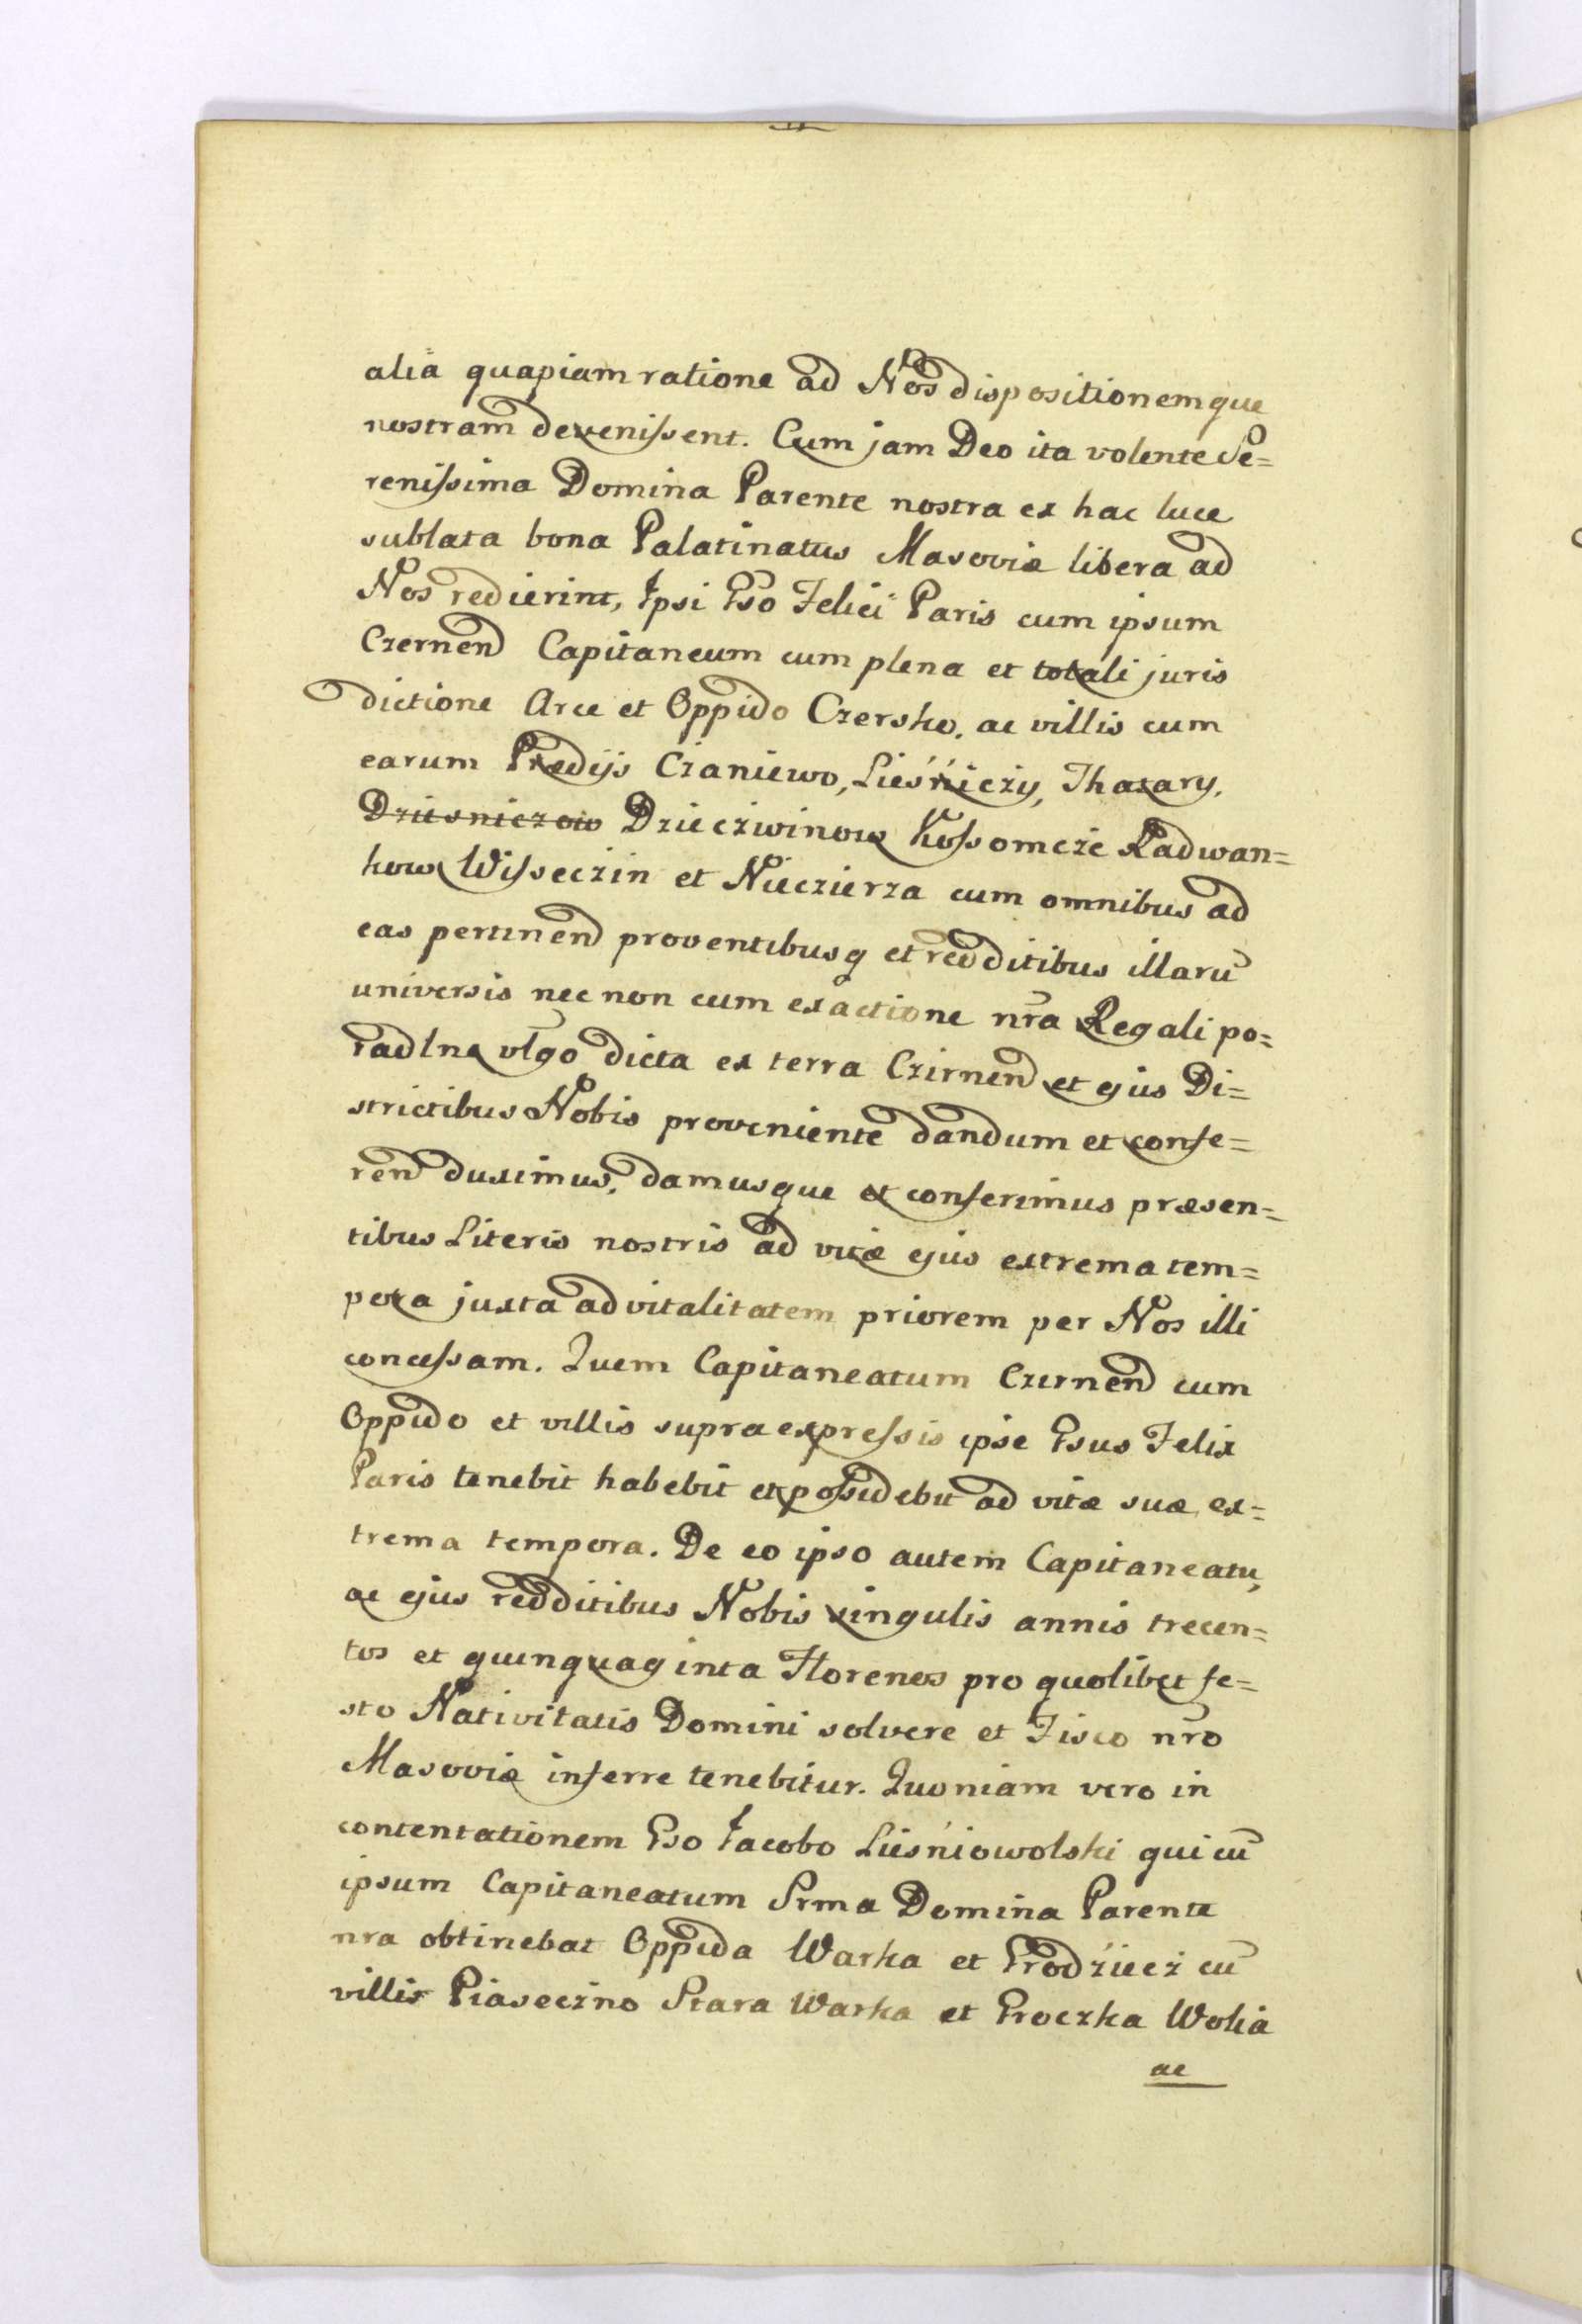 alia quapiam ratione ad Nos dispositionemque
nostram devenissent. Cum jam Deo ita volente Se=
renissima Domina Parente nostra ex hac luce
sublata bona Palatinatus Masoviæ libera ad
Nos redierint, Ipsi Gso Felici Paris cum ipsum
Czernen Capitaneum cum plena et totali juris
dictione Arce et Oppido Czersko, ac villis cum
earum Prædijs Czaniewo, Lieśniczy, Thatary,
Dziesniczow Dziecziwinow Kossomcze Radwan=
kow Wisseczin et Nieczierza cum omnibus ad
eas pertinen proventibusq et redditibus illarū
universis nec non cum exactione nr̄a Regali po=
radlne vlgo dicta ex terra Czirnen et ejus Di=
strictibus Nobis proveniente dandum et confe=
ren duximus, damusque et conferimus præsen=
tibus Literis nostris ad vitæ ejus extrema tem=
pora juxta advitalitatem priorem per Nos illi
concessam. Quem Capitaneatum Czirnen cum
Oppido et villis supra expressis ipse Gsus Felix
Paris tenebit habebit et possidebit ad vitæ suæ ex=
trema tempora. De eo ipso autem Capitaneatu,
ac ejus redditibus Nobis singulis annis trecen=
tos et quinquaginta Florenos pro quolibet fe=
sto Nativitatis Domini solvere et Fisco nr̄o
Masoviæ inferre tenebitur. Quoniam vero in
contentationem Gso Jacobo Lieśniowolski qui cū
ipsum Capitaneatum Srma Domina Parente
nra obtinebat Oppida Warka et Grodziecz cū
villis Piaseczno Stara Warka et Groczka Wolia
ac